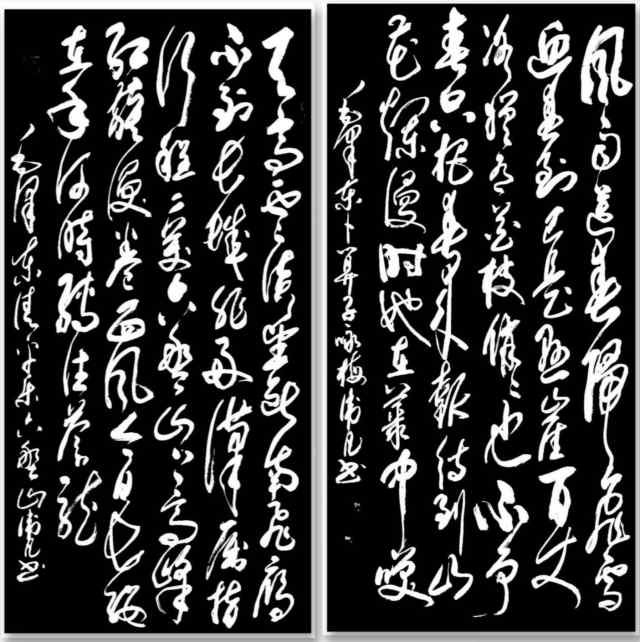 風雨送春歸飛雪
迎春到已是悬崖百丈
冰猶有花枝俏俏也不争
春只把春来報待到山
花爛漫时她在叢中笑
毛澤东卜算子咏梅书
天高云淡望断南飛雁
不到长城非好漢屈指
行程二萬六盘山上高峰
红旗漫卷西风今日长缨
在手何時缚住苍龙
毛澤东清平乐六盘山书